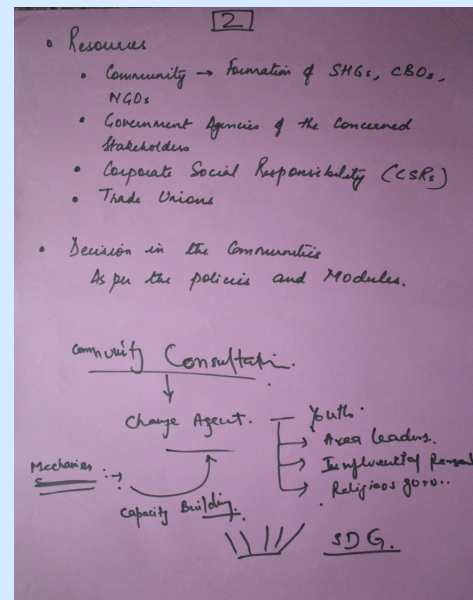 2
• Resources
• Community → Formation of SHGs, CBOs,
NGOs
• Government Agencies of the Concerned
Stakeholders
• Corporate Social Responsibility (CSRs)
• Trade Unions
• Decision in the Communities
As per the policies and Modules.
Community Consultation.
Change Agent. — Youth.
→ Area leaders.
→ Influential
→ Religious
Mechanism
Capacity Building.
SDG.